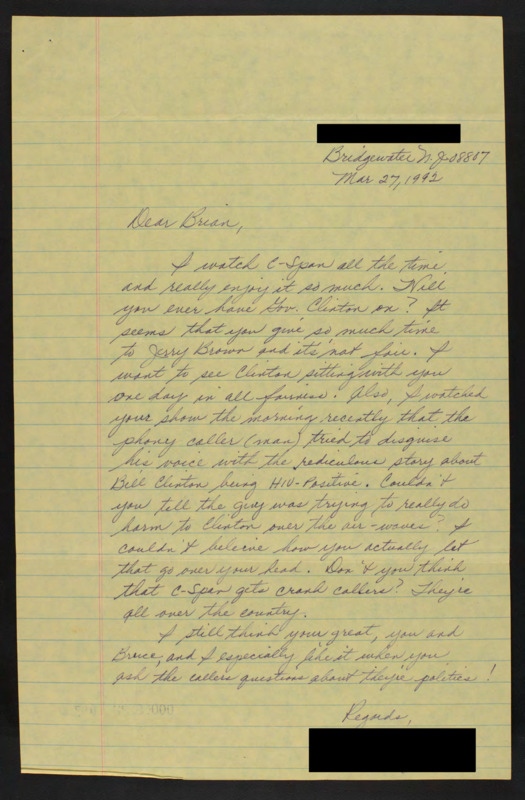 Bridgewater N.J. 08807
Mar 27, 1992
Dear Brian,
I watch C-Span all the time,
and really enjoy it so much. Will
you ever have Gov. Clinton on? It
seems that you give so much time
to Jerry Brown and it's not fair. I
want to see Clinton sitting with you
one day in all fairness. Also, I watched
your show the morning recently that the
phony caller (man) tried to disguise
his voice with the rediculous story about
Bill Clinton being HIV-Positive. Couldn't
you tell the guy was trying to really do
harm to Clinton over the air-waves? I
couldn't believe how you actually let
that go over your head. Don't you think
that C-Span gets crank callers? They're
all over the country.
I still think your great, you and
Bruce, and I especially like it when you
ask the callers questions about they're politics!
Regards,